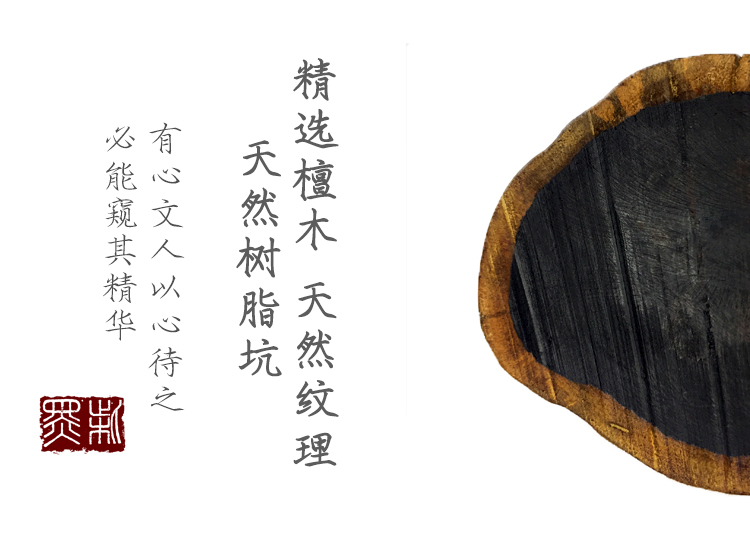 精选檀木 天然纹理
天然树脂坑
有心文人以心待之
必能窥其精华